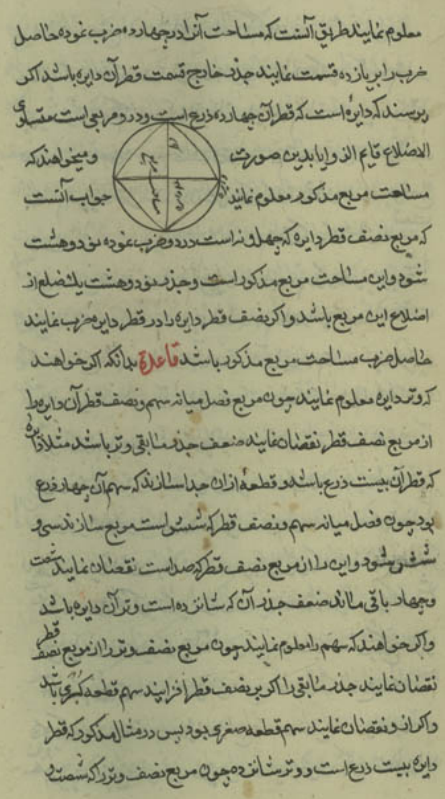 معلوم نمایند طریق آنست که مساحت آنرا در چهارده ضرب نموده حاصل
ضرب را بر یازده قسمت نمایند جذر خارج قسمت قطر آن دایره باشد اگر
پرسند که دایره است که قطر آن چهارده ذرع است و در و مربعی است متساوی
الاضلاع قایم الزوایا بدین صورت و میخواهند که
مساحت مربع مذکور معلوم نمایند جواب آنست
که مربع نصف قطر دایره که چهل و نه است در دو ضرب نموده نود و هشت
شود و این مساحت مربع مذکور است و جذر نود و هشت یک ضلع از
اضلاع این مربع باشد و اکر نصف قطر دایره را در قطر دایره ضرب نمایند
حاصل ضرب مساحت مربع مذکور باشد قاعدة بدانکه اکر خواهند
که وتر دایره معلوم نمایند چون مربع فضل میانه سهم و نصف قطر آن دایره را
از مربع نصف قطر نقصان نمایند ضعف جذر مابقی وتر باشد مثلا دایره
که قطر آن بیست ذرع باشد و قطعه ازان جدا سازند که سهم آن چهار ذرع
بود چون فضل میانه سهم و نصف قطر که شش است مربع سازند سی و
شش شود و این را از مربع نصف قطر که صد است نقصان نمایند شصت
و چهار باقی ماند ضعف جذر آن که شانزده است وتر آن دایره باشد
و اکر خواهند که سهم را معلوم نمایند چون مربع نصف وتر را از مربع نصف قطر
نقصان نمایند جذر مابقی را اکر بر نصف قطر افزایند سهم قطعه کبری باشد
و اکر از و نقصان نمایند سهم قطعه صغری بود پس در مثال مذکور که قطر
دایره بیست ذرع است و وتر شانزده چون مربع نصف وتر را که شصت و